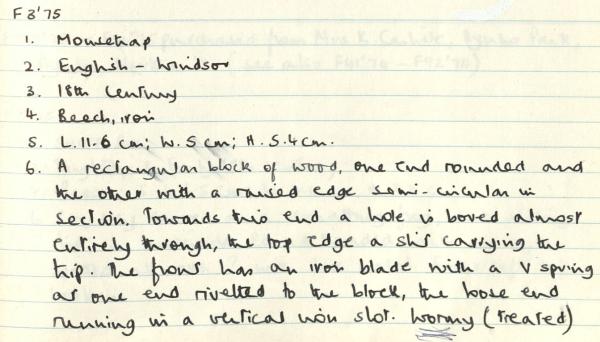 F 3'75
1. Mousetrap
2. English - Windsor
3. 18th Century
4. Beech, iron
5. L. 11.6 cm; W. 5 cm; H. 5.4 cm.
6. A rectangular block of wood, one end rounded and
the other with a raised edge semi-circular in
section. Towards this end a hole is bored almost
entirely through, the top edge a slit carrying the
trip. The front has an iron blade with a V spring
at one end rivetted to the block, the loose end
running in a vertical iron slot. Wormy (treated)